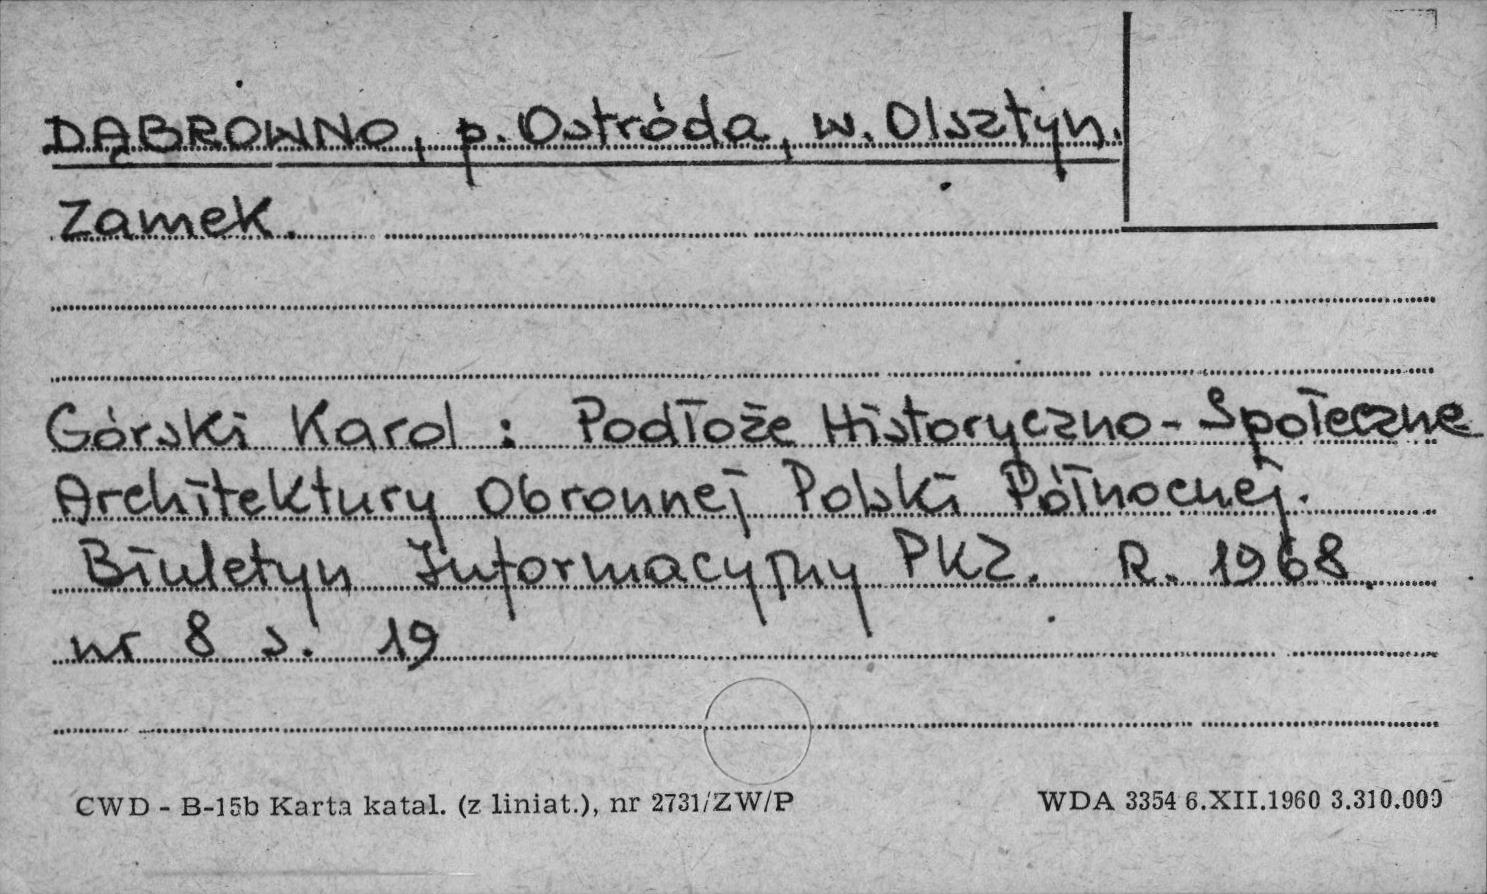 DĄBRÓWNO, p. Ostróda, w. Olsztyn.
Zamek.
Górski Karol : Podłoże Historyczno-Społeczne
Architektury Obronnej Polski Północnej.
Biuletyn Informacyjny PKZ. R. 1968.
nr 8 s. 19
CWD - B-15b Karta katal. (z liniat.), nr 2731/ZW/P
WDA 3354 6.XII.1960 3.310.000